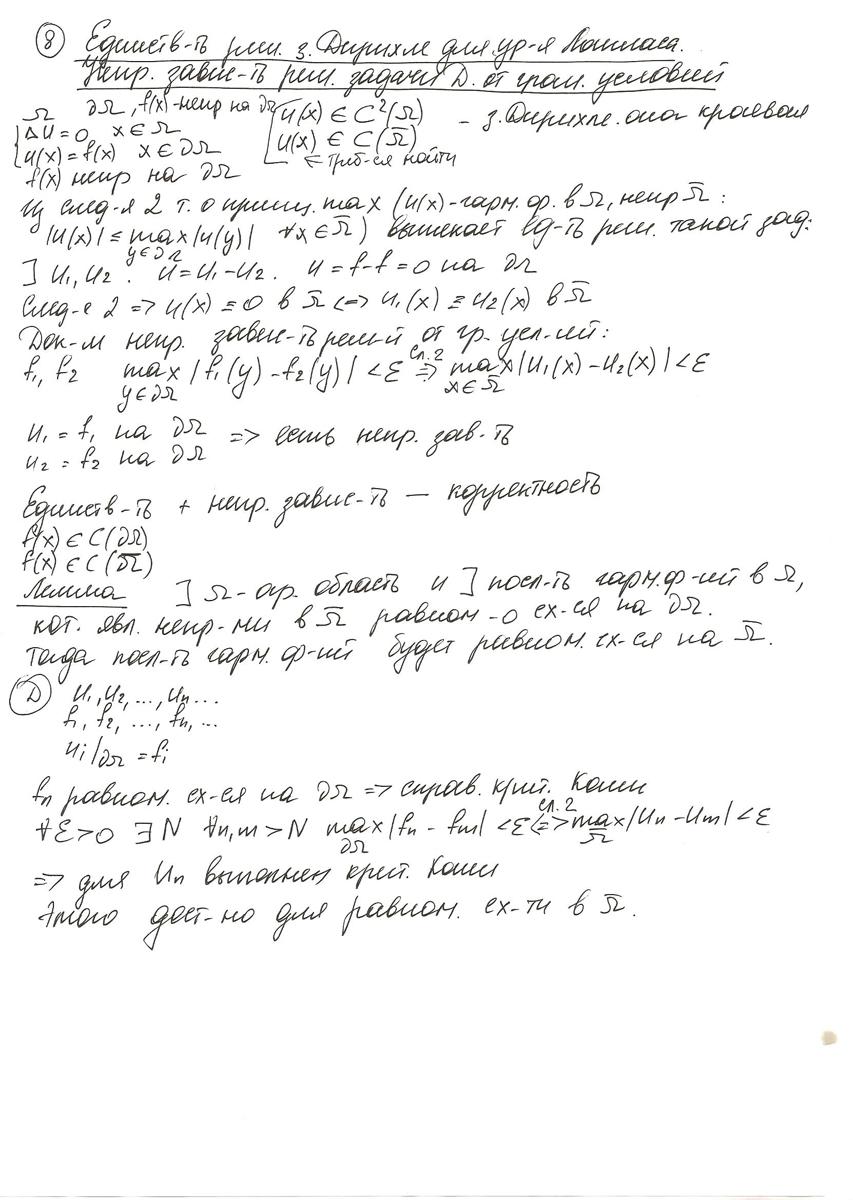 ⑧ Единств-ть реш. з. Дирихле для ур-я Лапласа.
Непр. завис-ть реш. задачи Д. от гран. условий
Ω ∂Ω, f(x)-непр на ∂Ω
{ΔU=0, x∈Ω
u(x)=f(x) x∈∂Ω
[u(x)∈C²(Ω)
u(x)∈C(Ω̄)
← треб-ся найти
- з. Дирихле. она краевая
f(x) непр на ∂Ω
Из след-я 2 т. о принц. max (u(x)-гарм. ф. в Ω, непр Ω̄:
|u(x)| ≤ max|u(y)| ∀x∈Ω̄) вытекает ед-ть реш. такой зад:
y∈∂Ω
] u₁, u₂. u=u₁-u₂. u=f-f=0 на ∂Ω
След-е 2 => u(x)≡0 в Ω̄ <=> u₁(x)≡u₂(x) в Ω̄
Док-м непр. завис-ть реш-й от гр. усл-ий:
f₁, f₂ max |f₁(y)-f₂(y)| <ε =>(сл. 2) max|u₁(x)-u₂(x)|<ε
y∈∂Ω x∈Ω̄
u₁=f₁ на ∂Ω => есть непр. зав-ть
u₂=f₂ на ∂Ω
Единств-ть + непр. завис-ть — корректность
f(x)∈C(∂Ω)
Лемма ] Ω-огр. область и ] посл-ть гарм. ф-ий в Ω,
кот. явл. непр-ми в Ω̄ равном-о сх-ся на ∂Ω.
Тогда посл-ть гарм. ф-ий будет равном. сх-ся на Ω̄.
Ⓓ u₁, u₂, ..., uₙ...
f₁, f₂, ..., fₙ, ...
uᵢ|∂Ω =fᵢ
fₙ равном. сх-ся на ∂Ω => справ. крит. Коши
∀ε>0 ∃N ∀n,m>N max|fₙ - fₘ| <ε <=>(сл. 2) max|uₙ-uₘ|<ε
∂Ω Ω̄
=> для uₙ выполнен крит. Коши
Этого дост-но для равном. сх-ти в Ω̄.